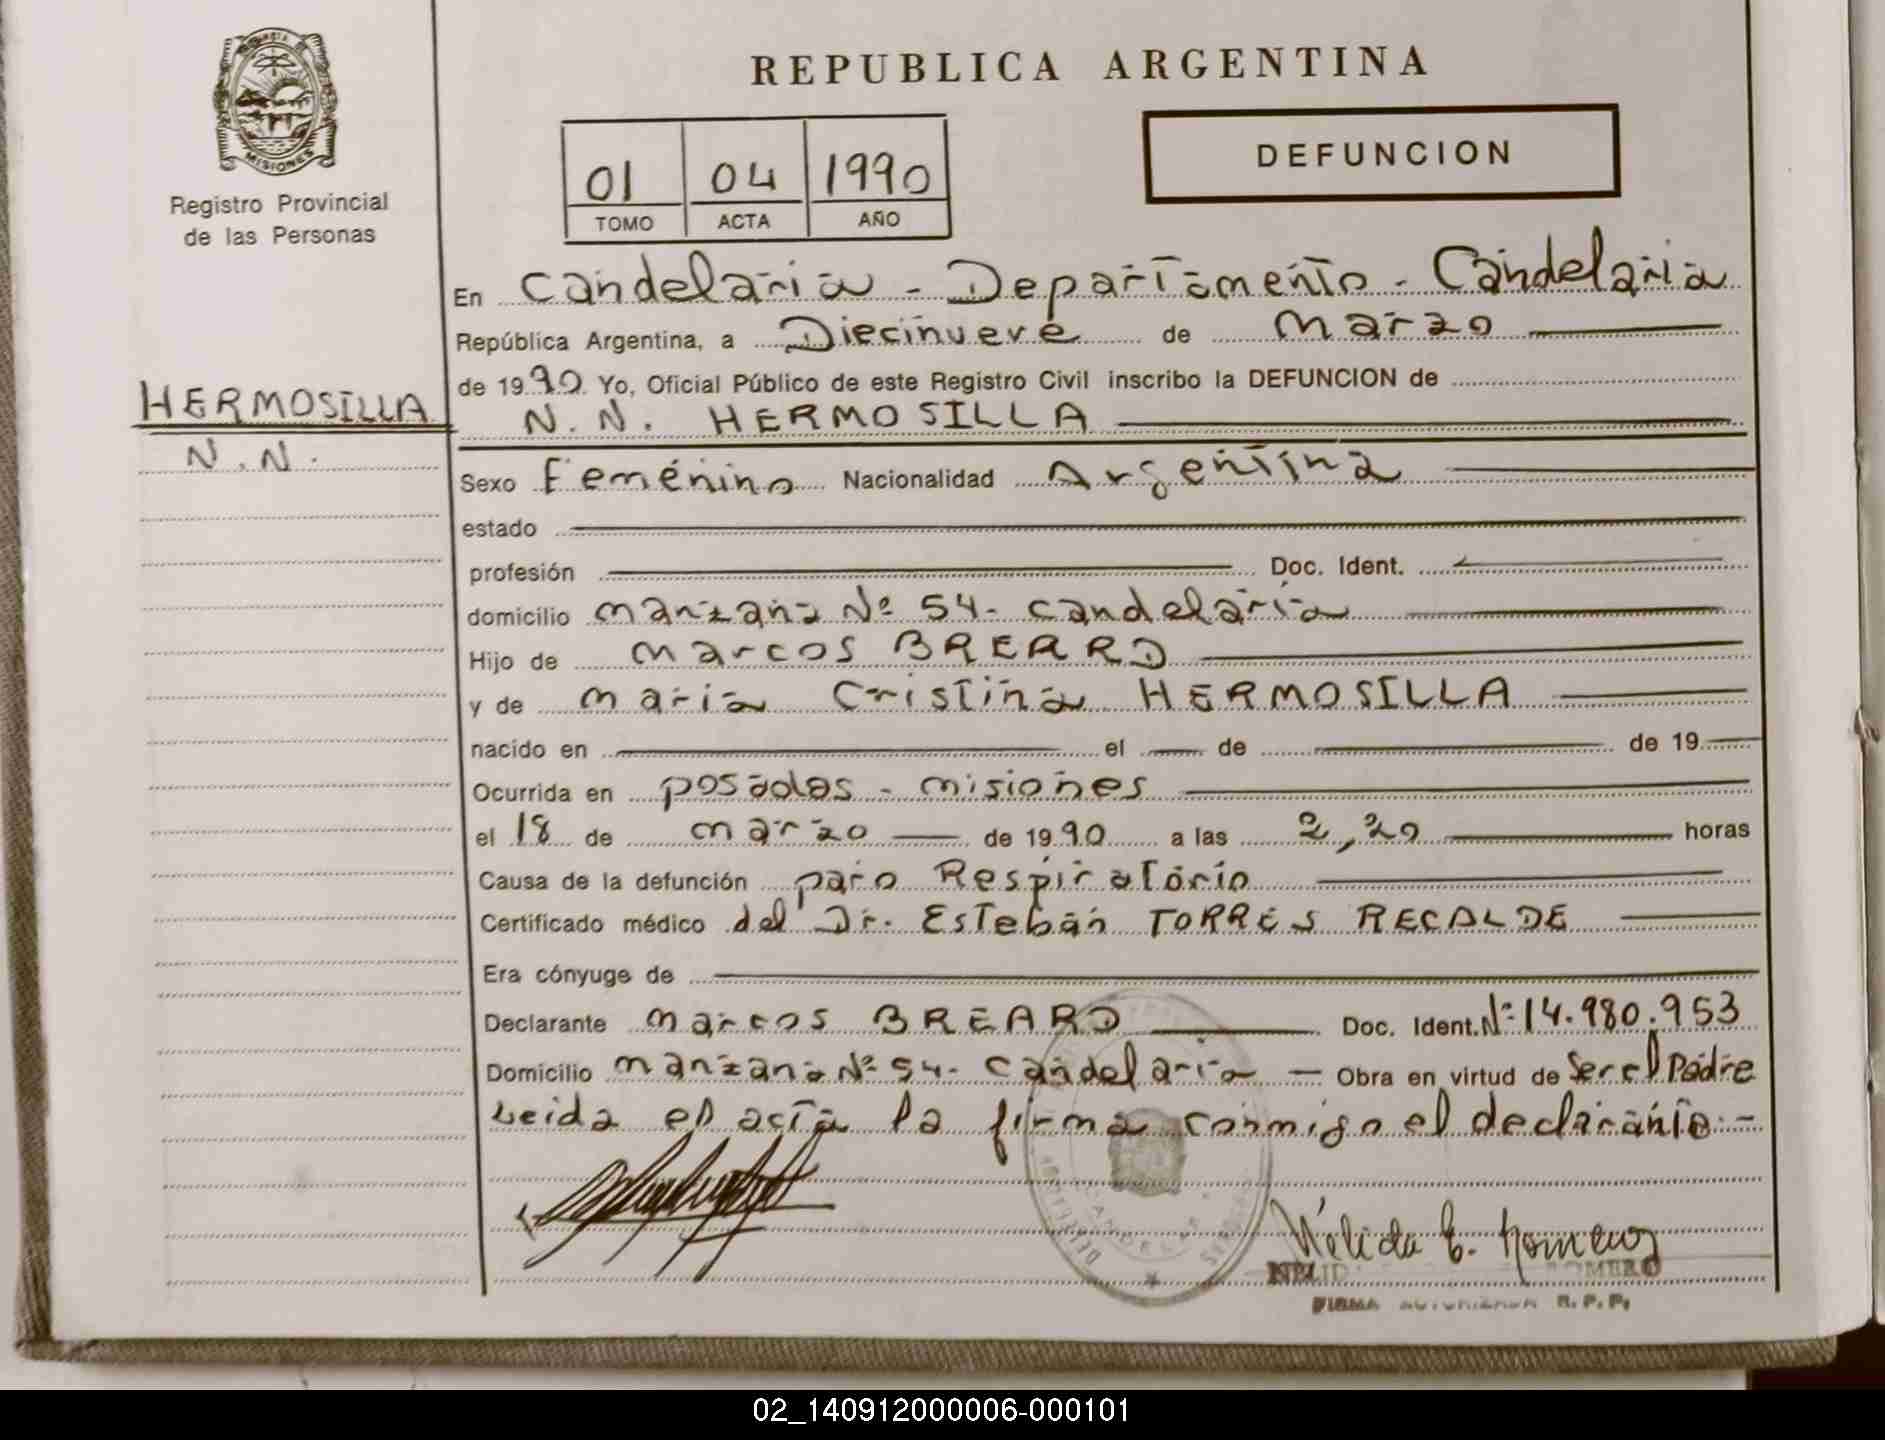 REPUBLICA ARGENTINA
PROVINCIA DE
MISIONES
Registro Provincial
de las Personas
01 04 1990
TOMO ACTA AÑO
DEFUNCION
En Candelaria - Departamento - Candelaria
República Argentina, a Diecinueve de marzo
de 1990 Yo, Oficial Público de este Registro Civil inscribo la DEFUNCION de
HERMOSILLA
N.N. HERMOSILLA
N.N.
Sexo Femenino Nacionalidad Argentina
estado
profesión Doc. Ident.
domicilio manzana Nº 54- Candelaria
Hijo de marcos BREARD
y de maria Cristina HERMOSILLA
nacido en el de de 19
Ocurrida en posadas - misiones
el 18 de marzo de 1990 a las 2,20 horas
Causa de la defunción paro Respiratorio
Certificado médico del Dr. Esteban TORRES RECALDE
Era cónyuge de
Declarante marcos BREARD Doc. Ident. Nº 14.980.953
Domicilio manzana Nº 54- Candelaria - Obra en virtud de Ser el Padre
Leida el acta la firma conmigo el declarante.-
Nélida E. Romero
ROMERO
FIRMA AUTORIZADA R.P.P.
02_140912000006-000101